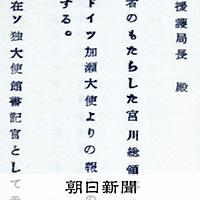 援護局長　殿
者のもたらした宮川総領
ドイツ加瀬大使よりの報
する。
在ソ独大使館書記官として
朝日新聞